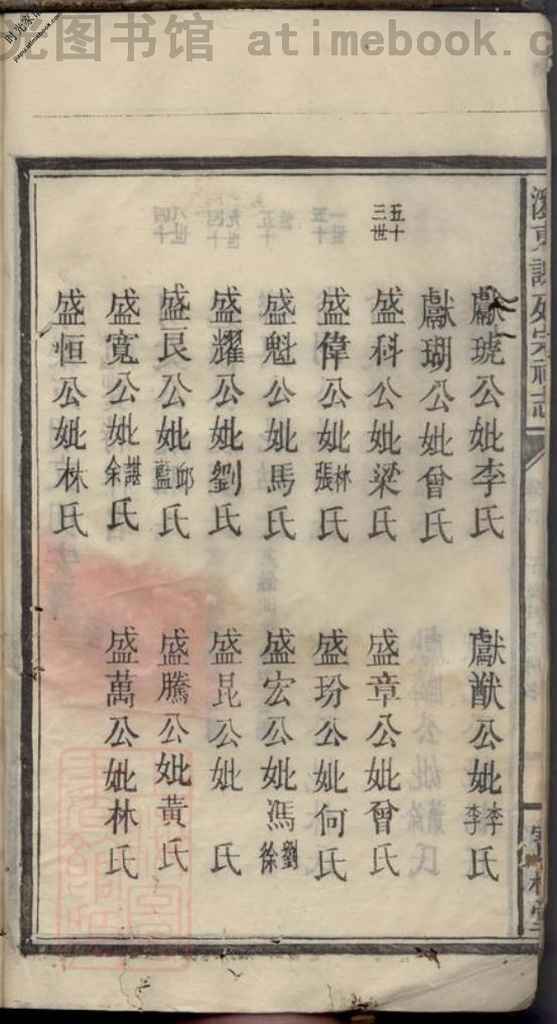 光图书馆 atimebook.c
獻琥公妣李氏
獻猷公妣李李氏
獻瑚公妣曾氏
五十三世
盛科公妣梁氏
盛章公妣曾氏
盛偉公妣林張氏
盛玢公妣何氏
盛魁公妣馬氏
盛宏公妣馮劉徐氏
盛耀公妣劉氏
盛昆公妣 氏
盛艮公妣邱藍氏
盛騰公妣黃氏
盛寬公妣諶余氏
盛萬公妣林氏
盛恒公妣林氏